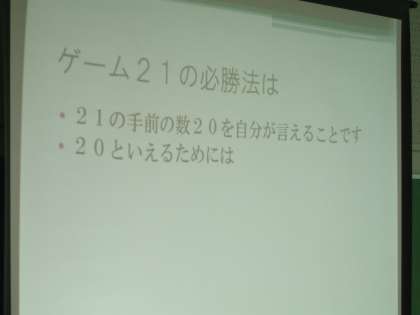 ゲーム２１の必勝法は
• ２１の手前の数２０を自分が言えることです
• ２０といえるためには